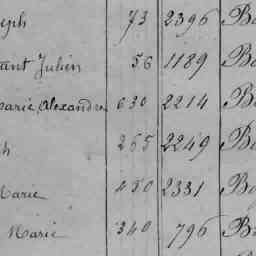 seph 73 2396 B
ant Julien 56 1189 B
Marie Alexandre 630 2214 B
ph 255 2249 B
Marie 450 2331 B
Marie 340 796 B